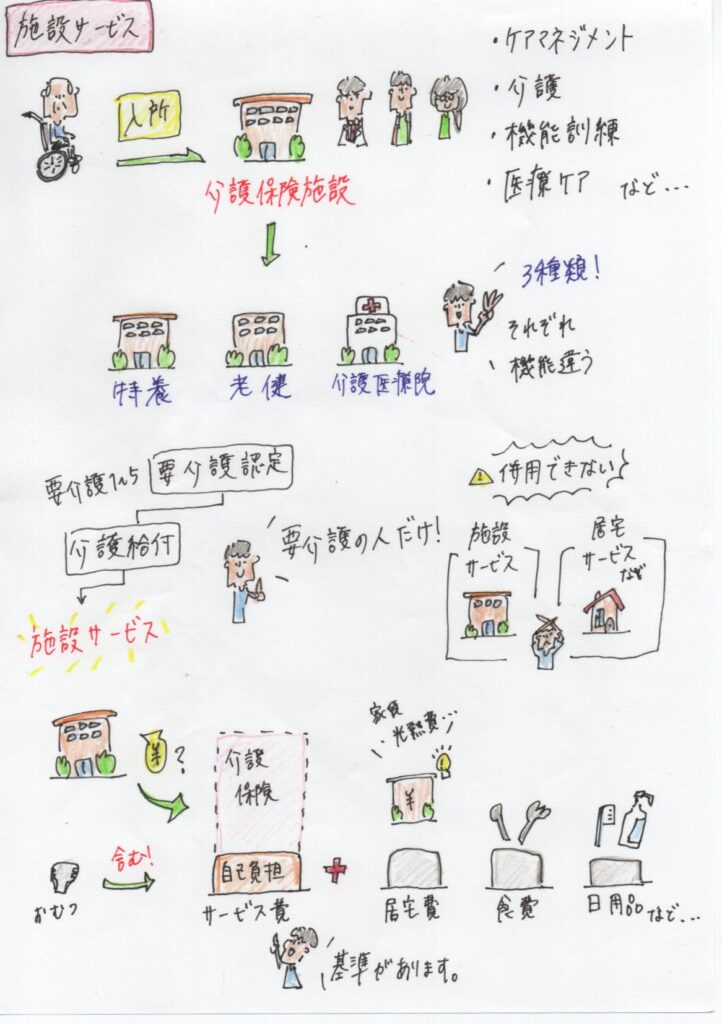 施設サービス
・ケアマネジメント
・介護
・機能訓練
・医療ケア など...
入所
介護保険施設
3種類!
それぞれ
機能違う
特養
老健
介護医療院
要介護1~5
要介護認定
介護給付
施設サービス
要介護の人だけ!
併用できない
施設
サービス
居宅
サービス
など
¥?
介護
保険
自己負担
サービス費
おむつ
含む!
+
家賃
光熱費...
¥
居宅費
食費
日用品 など...
基準があります。